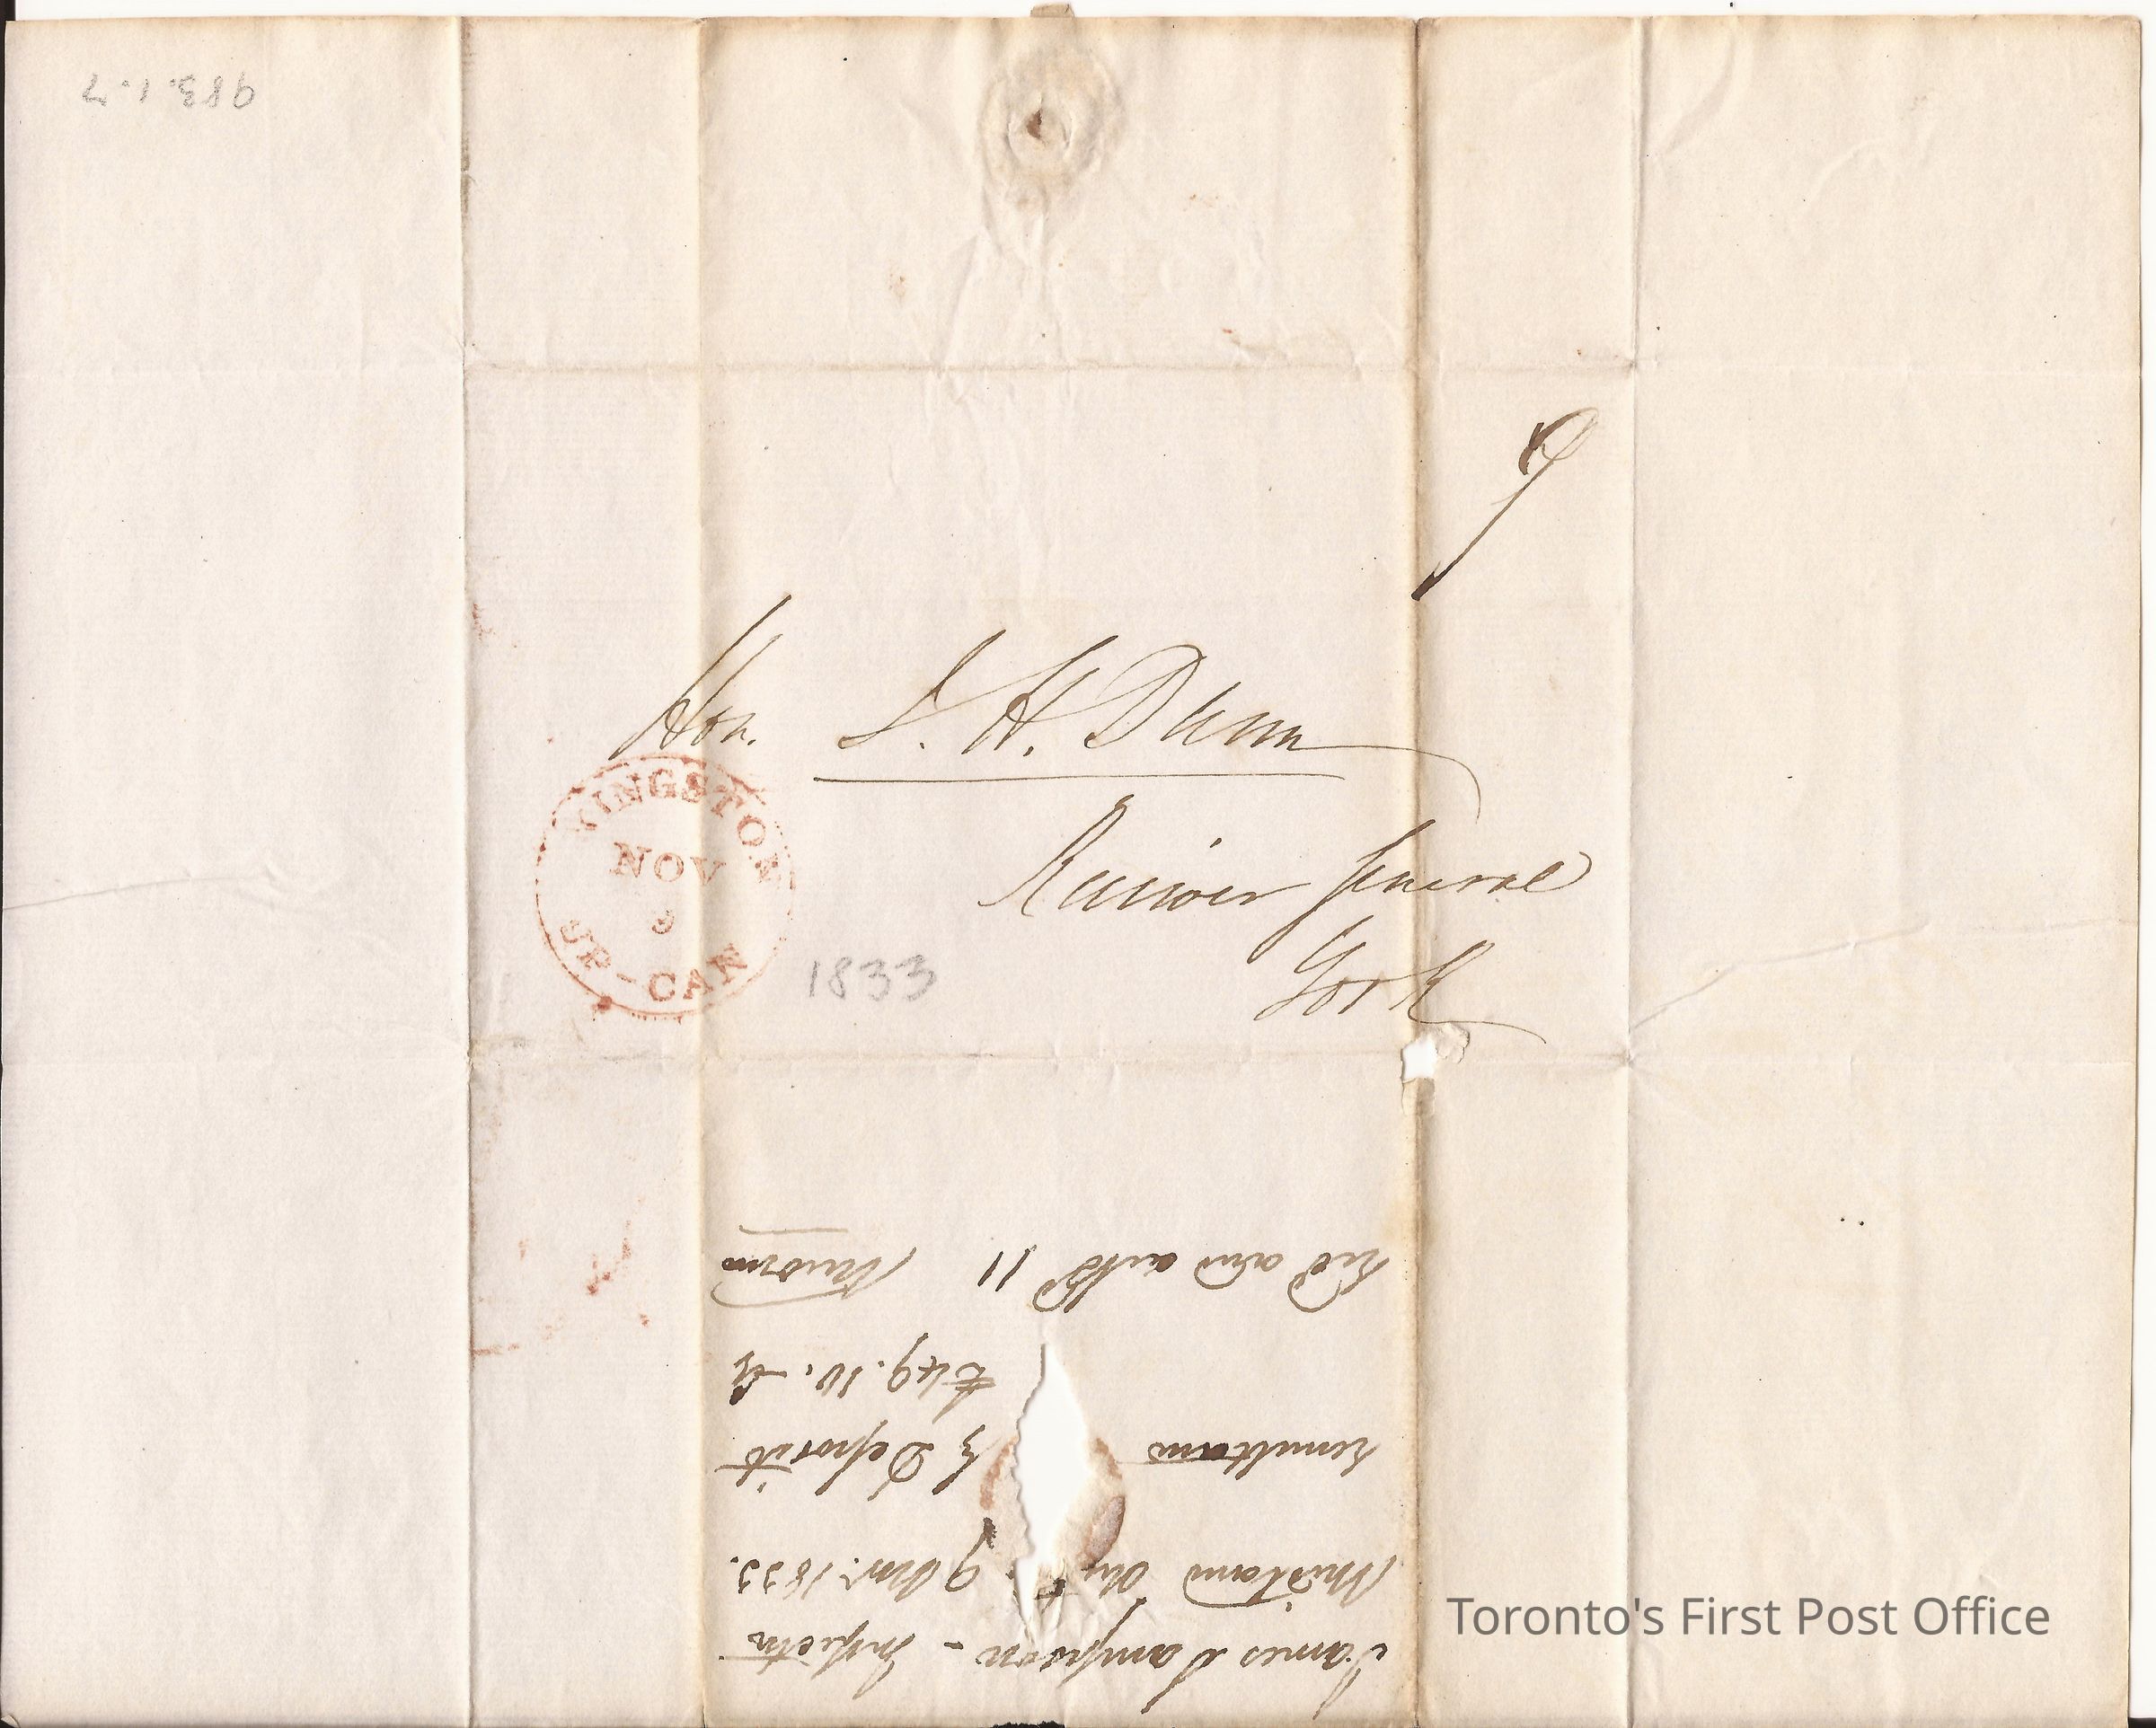 983.1.7
9
Hon. J. H. Dunn
Receiver General
York
KINGSTON
NOV
9
UP-CAN
1833
James Sampson - Inspectr
Midland 9 Novr. 1833.
remittance
by Deposit
£49.10.
Recd and 11
Toronto's First Post Office